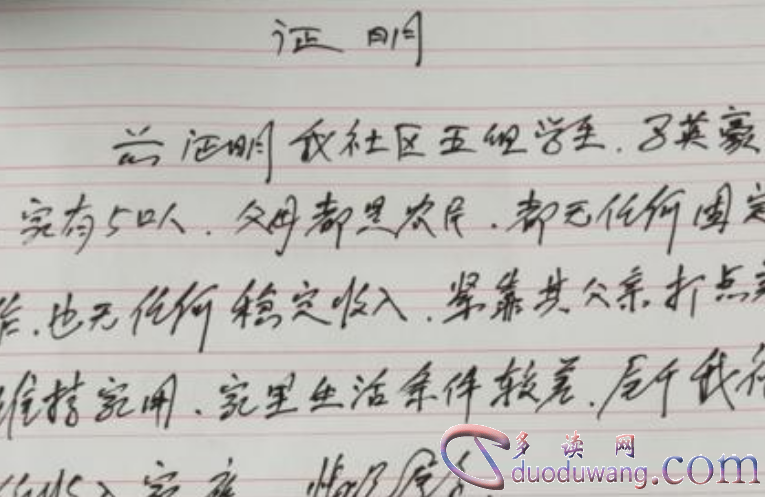 证明
兹证明我社区五组学生.子英豪
家有5口人.父母都是农民.都无任何固定
也无任何稳定收入.紧靠其父亲打点
维持家用.家里生活条件较差.属于我社
收入家庭 情况属实
多读网
duoduwang.com